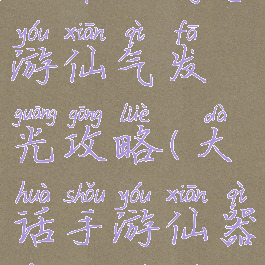 yóu xiān qì fā
游仙气发
guāng gōng lüè dà
光攻略(大
huà shǒu yóu xiān qì
话手游仙器